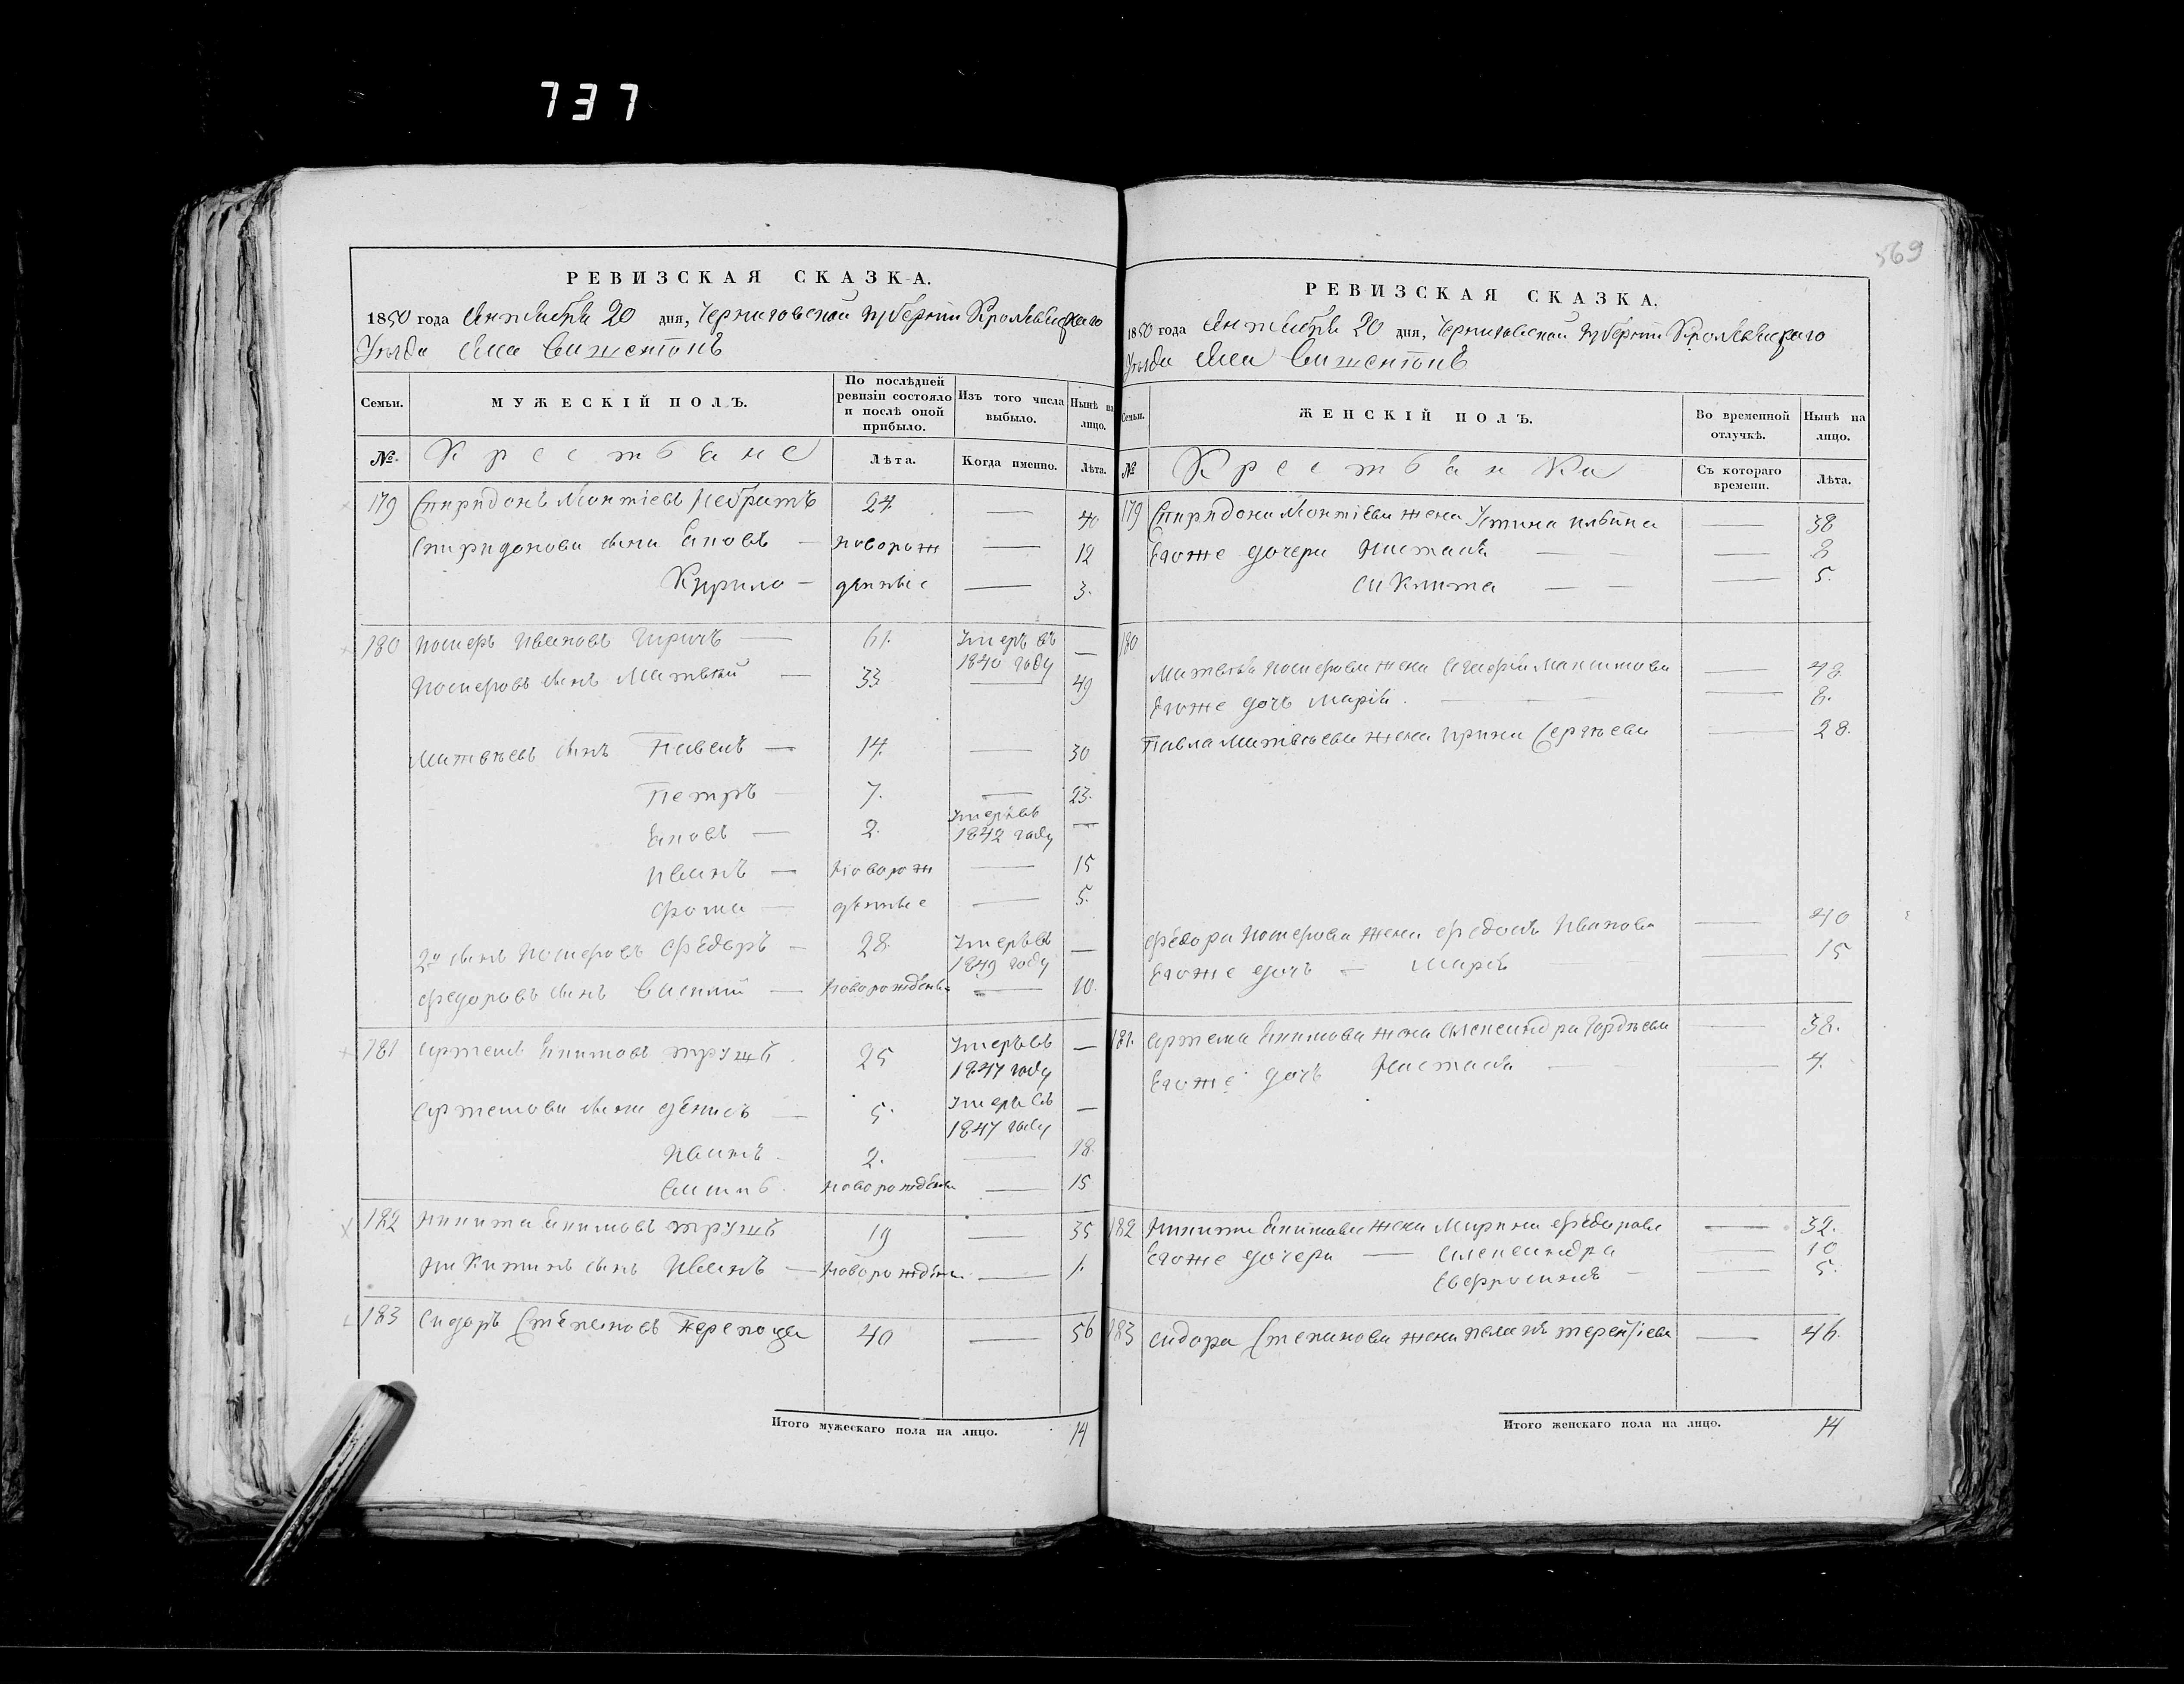 737
569
РЕВИЗСКАЯ СКАЗКА.
1850 года Октября 20 дня, Черниговской губернии Кролевецкаго
Уѣзда села
Семьи. МУЖЕСКІЙ ПОЛЪ. По послѣдней ревизіи состояло и послѣ оной прибыло. Изъ того числа выбыло. Нынѣ на лицо.
№. Крестьяне Лѣта. Когда именно. Лѣта.
179 Спиридонъ 24. — 40
Спиридонови сыни Яковъ — новорож — 12
Кирило — денные — 3.
180 Ивановъ 61. Умеръ въ 1840 году —
сынъ Матвѣй — 33 — 49
Матвѣевъ сынъ Павелъ — 14. — 30
Петръ — 7. — 23.
Яковъ — 2. Умеръ въ 1842 году —
Иванъ — новорож — 15
Фома — денные — 5.
2й сынъ Федоръ — 28. Умеръ въ 1849 году —
Федоровъ сынъ Василій — новорожденъ — 10.
181 Артемъ Якимовъ 25 Умеръ въ 1847 году —
Артемови сыни Денисъ — 5. Умеръ въ 1847 году —
Иванъ 2. — 18.
новорожден — 15
182 Никита Якимовъ 19 — 35
Никитинъ сынъ Иванъ — новорожден — 1.
183 Сидоръ Степановъ 40 — 56
Итого мужескаго пола на лицо. 14
РЕВИЗСКАЯ СКАЗКА.
1850 года Октября 20 дня, Черниговской губернии Кролевецкаго
Уѣзда села
Семьи. ЖЕНСКІЙ ПОЛЪ. Во временной отлучкѣ. Нынѣ на лицо.
№ Крестьянки Съ котораго времени. Лѣта.
179 Спиридона жена Устина Ильина — 38
Его же дочери Настасья — — — 8
— — — 5.
180
Матвѣя жена Максимова — 48
Его же дочь Марія — — — 8.
Павла Матвѣева жена Ирина Сергѣева — 28.
Федора жена Федосья Иванова — 40
Его же дочь — Марія — — 15
181. Артема Якимова жена Александра Гордѣева — 38.
Его же дочь Настасья — — 4.
182 Никиты Якимова жена Марина Федорова — 32.
Его же дочери — Александра — 10
Евфросинья — — 5.
183 Сидора Степанова жена Пелагея Терентіева — 46.
Итого женскаго пола на лицо. 14